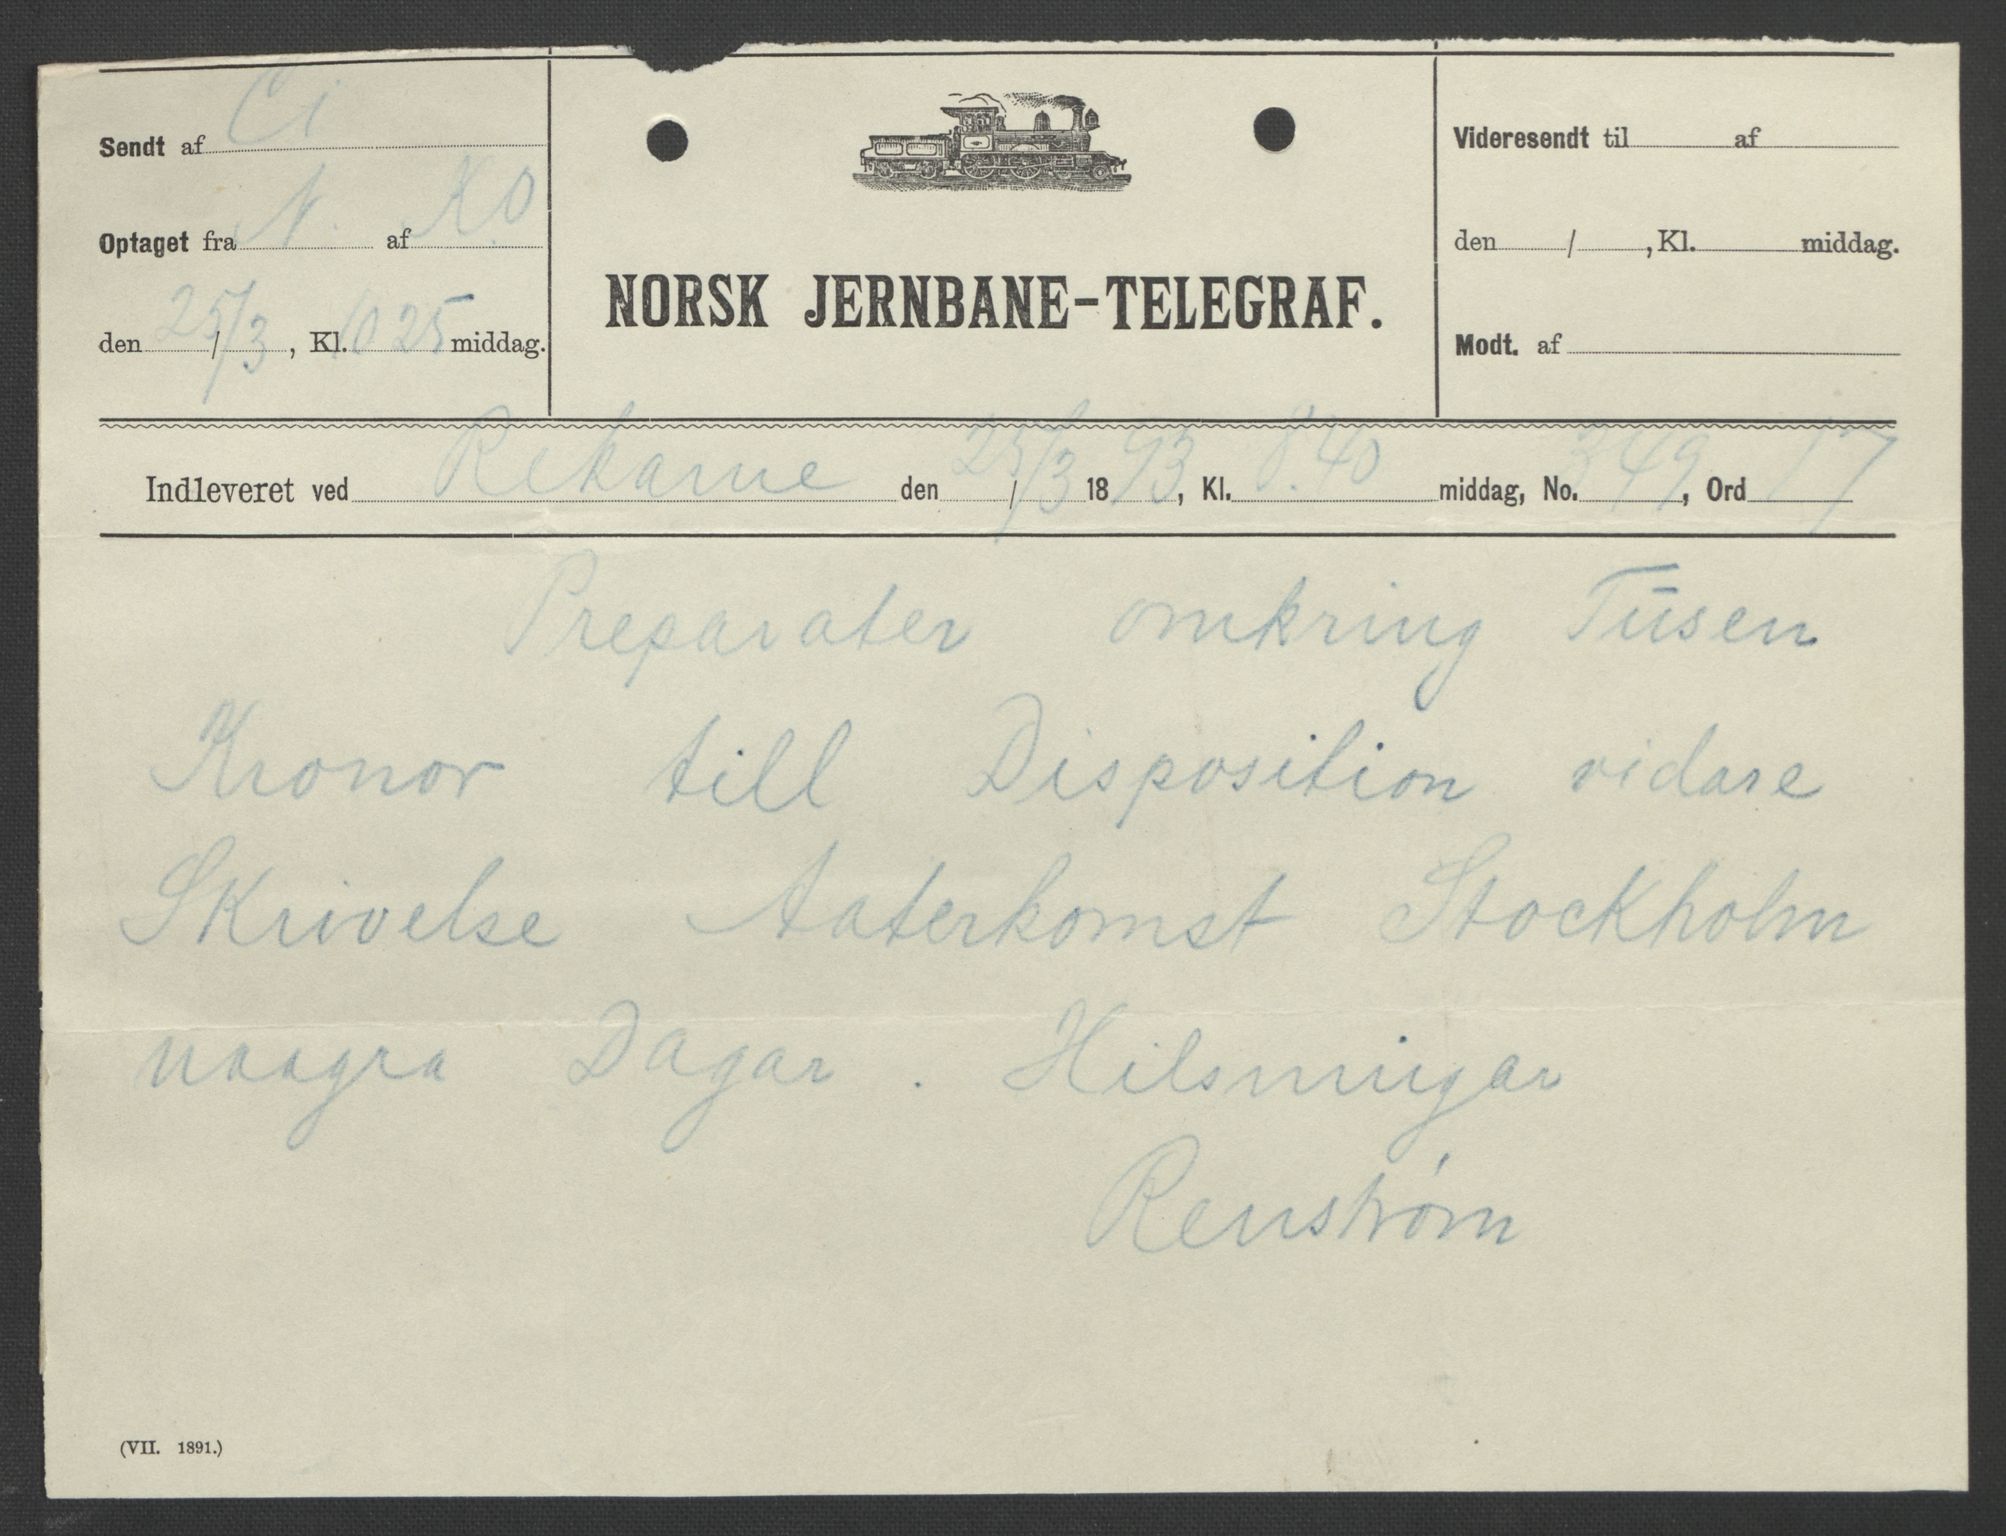 Sendt af Ci
Optaget fra N. af K.O
den 25/3, Kl. 10 25 middag.
NORSK JERNBANE-TELEGRAF.
Videresendt til af
den / , Kl. middag.
Modt. af
Indleveret ved Rekarne den 25/3 1893, Kl. 8.40 middag, No. 349, Ord 17
Preparater omkring Tūsen
Kronor till Disposition vidare
Skrivelse Aaterkomst Stockholm
naagra Dagar. Hilsningar
Renstrøm
(VII. 1891.)